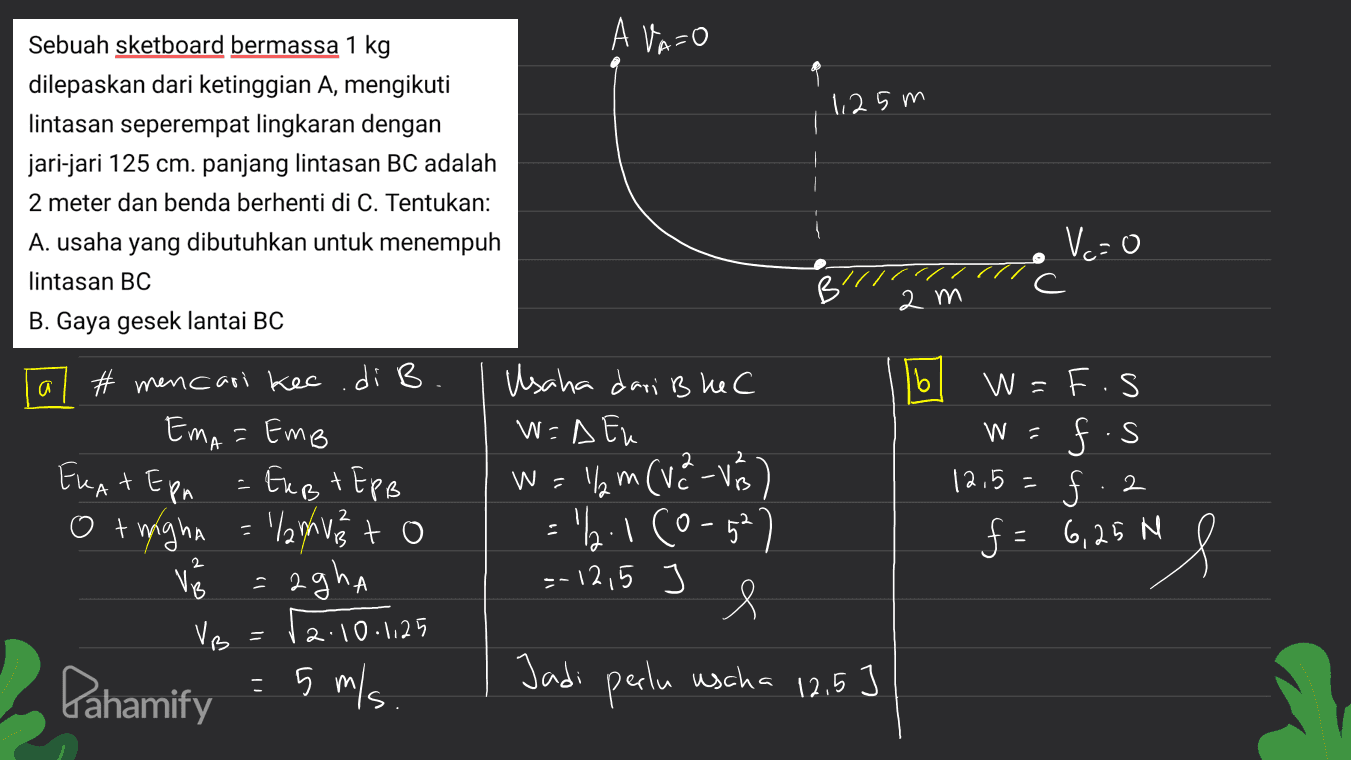 Sebuah sketboard bermassa 1 kg
dilepaskan dari ketinggian A, mengikuti
lintasan seperempat lingkaran dengan
jari-jari 125 cm. panjang lintasan BC adalah
2 meter dan benda berhenti di C. Tentukan:
A. usaha yang dibutuhkan untuk menempuh
lintasan BC
B. Gaya gesek lantai BC
A V_A=0
1,25 m
V_C=0
B
C
2 m
a # mencari kec. di B.
Em_A = Em_B
Ek_A + Ep_A = Ek_B + Ep_B
0 + mgh_A = 1/2 mv_B² + 0
V_B² = 2gh_A
V_B = √2.10.1,25
= 5 m/s.
Usaha dari B ke C
W = ΔEk
W = 1/2 m (V_C² - V_B²)
= 1/2 . 1 (0 - 5²)
= -12,5 J
Jadi perlu usaha 12,5 J
b W = F . S
W = f . s
12,5 = f . 2
f = 6,25 N
Pahamify